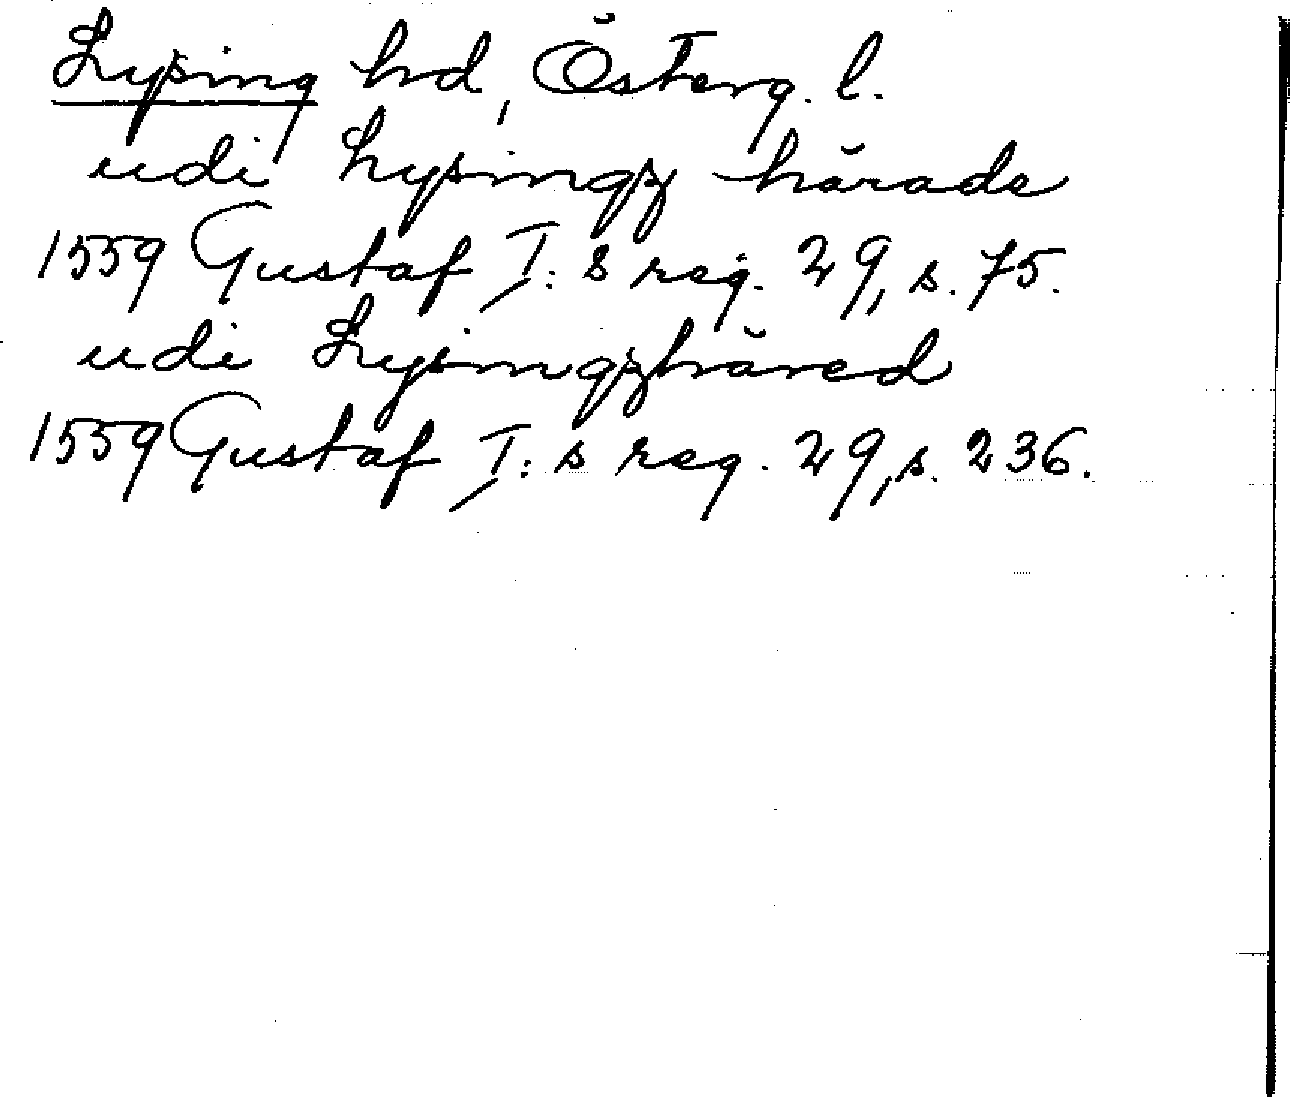 Lysing hd, Österg. l.
udi Lysingz härade
1559 Gustaf I:s reg. 29, s. 75.
udi Lysingzhäred
1559 Gustaf I:s reg. 29, s. 236.